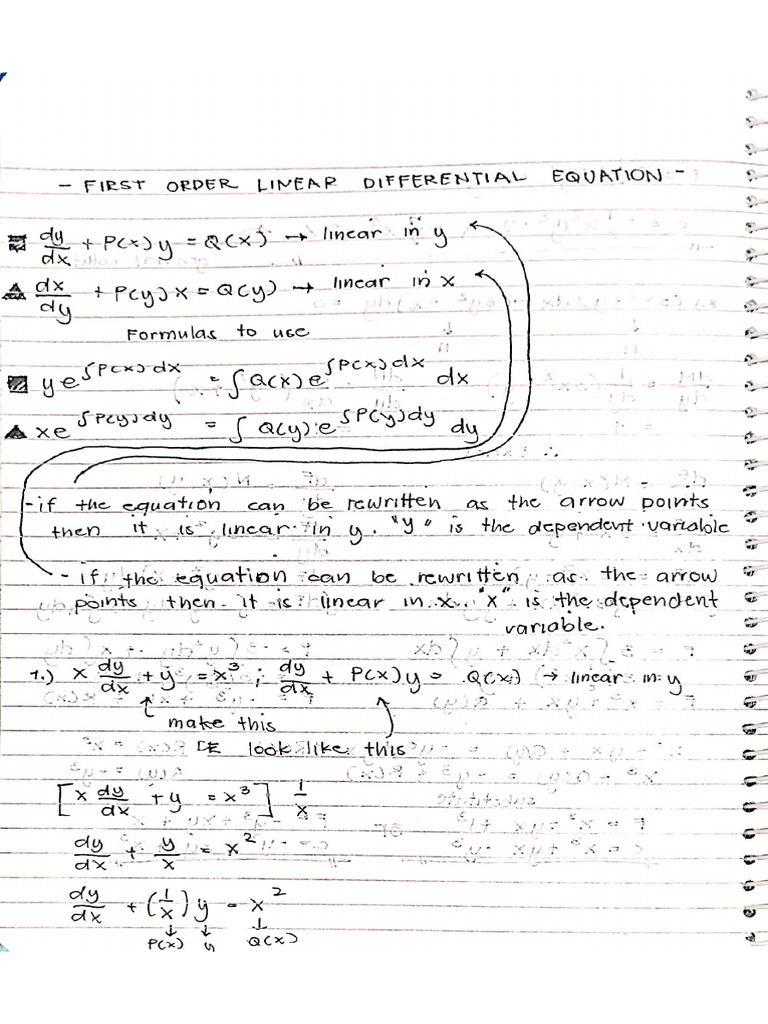 - FIRST ORDER LINEAR DIFFERENTIAL EQUATION -
dy/dx + P(x)y = Q(x) → linear in y
dx/dy + P(y)x = Q(y) → linear in x
Formulas to use
ye^∫P(x)dx = ∫Q(x)e^∫P(x)dx dx
xe^∫P(y)dy = ∫Q(y)e^∫P(y)dy dy
-if the equation can be rewritten as the arrow points
then it is linear in y. "y" is the dependent variable
- if the equation can be rewritten as the arrow
points then it is linear in x. "x" is the dependent
variable.
1.) x dy/dx + y = x³ ; dy/dx + P(x)y = Q(x) (→ linear in y
make this
DE look like this
[x dy/dx + y = x³] 1/x
dy/dx + y/x = x²
dy/dx + (1/x)y = x²
↓ ↓ ↓
P(x) y Q(x)